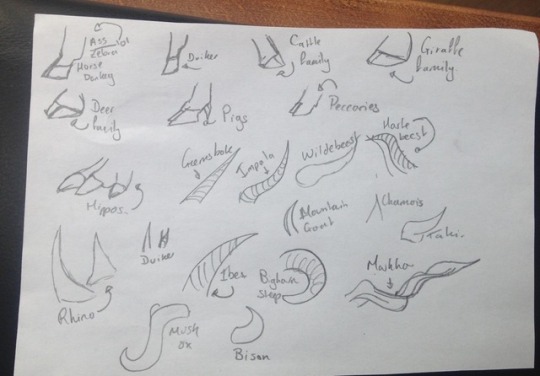 Ass
Zebra
Horse
Donkey
Duiker
Cattle
family
Giraffe
family
Deer
family
Pigs
Peccaries
Hippos.
Gemsbok
Impala
Wildebeest
Harte
beest
Mountain
Goat
Chamois
Takin
Rhino
Duiker
Ibex
Bighorn
sheep
Markhor
Musk
ox
Bison